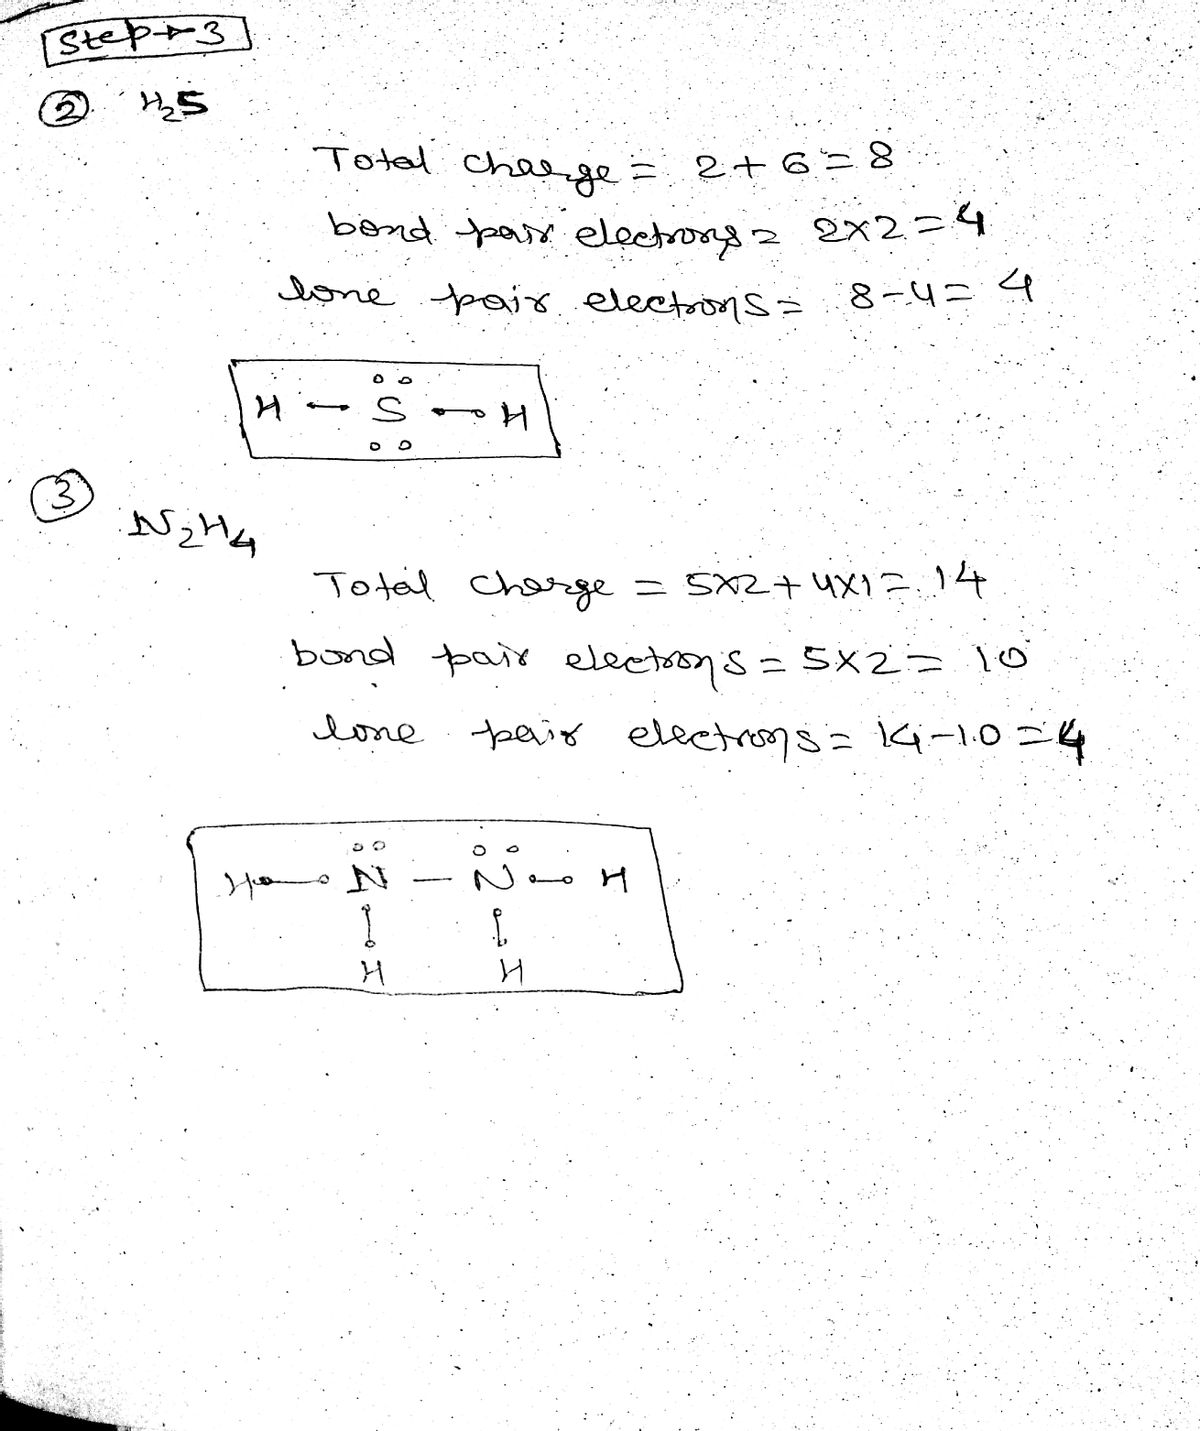 Step → 3
② H₂S
Total charge = 2 + 6 = 8
bond pair electrons = 2×2 = 4
lone pair electrons = 8-4 = 4
H — S — H
③
N₂H₄
Total charge = 5×2 + 4×1 = 14
bond pair electrons = 5×2 = 10
lone pair electrons = 14-10 = 4
H — N — N — H
H H